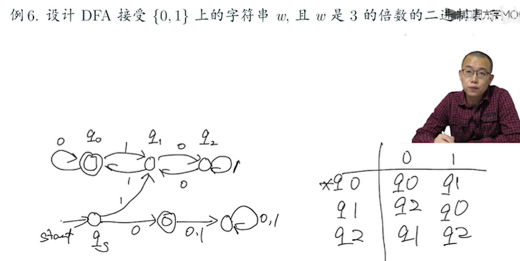 例 6. 设计 DFA 接受 {0, 1} 上的字符串 w, 且 w 是 3 的倍数的二进制表示
0 q0 1 q1 0 q2
1 0 1
1
start qs 0 0,1 0,1
0 1
*q0 q0 q1
q1 q2 q0
q2 q1 q2